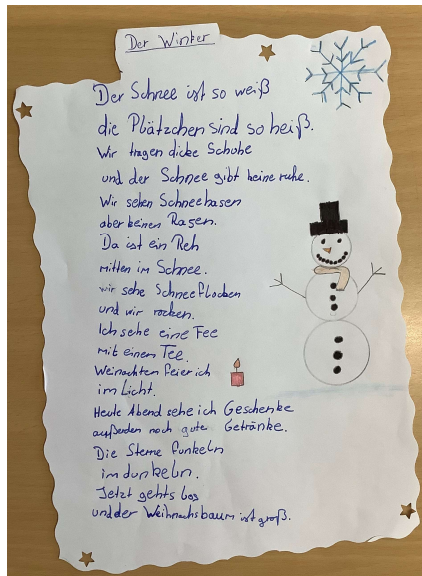 Der Winter
Der Schnee ist so weiß
die Plätzchen sind so heiß.
Wir tragen dicke Schuhe
und der Schnee gibt keine ruhe.
Wir sehen Schneehasen
aber keinen Rasen.
Da ist ein Reh
mitten im Schnee.
wir sehe Schneeflocken
und wir rocken.
Ich sehe eine Fee
mit einem Tee.
Weinachten feier ich
im Licht.
Heute Abend sehe ich Geschenke
außerden noch gute Getränke.
Die Sterne funkeln
im dunkeln.
Jetzt gehts los
und der Weihnachsbaum ist groß.